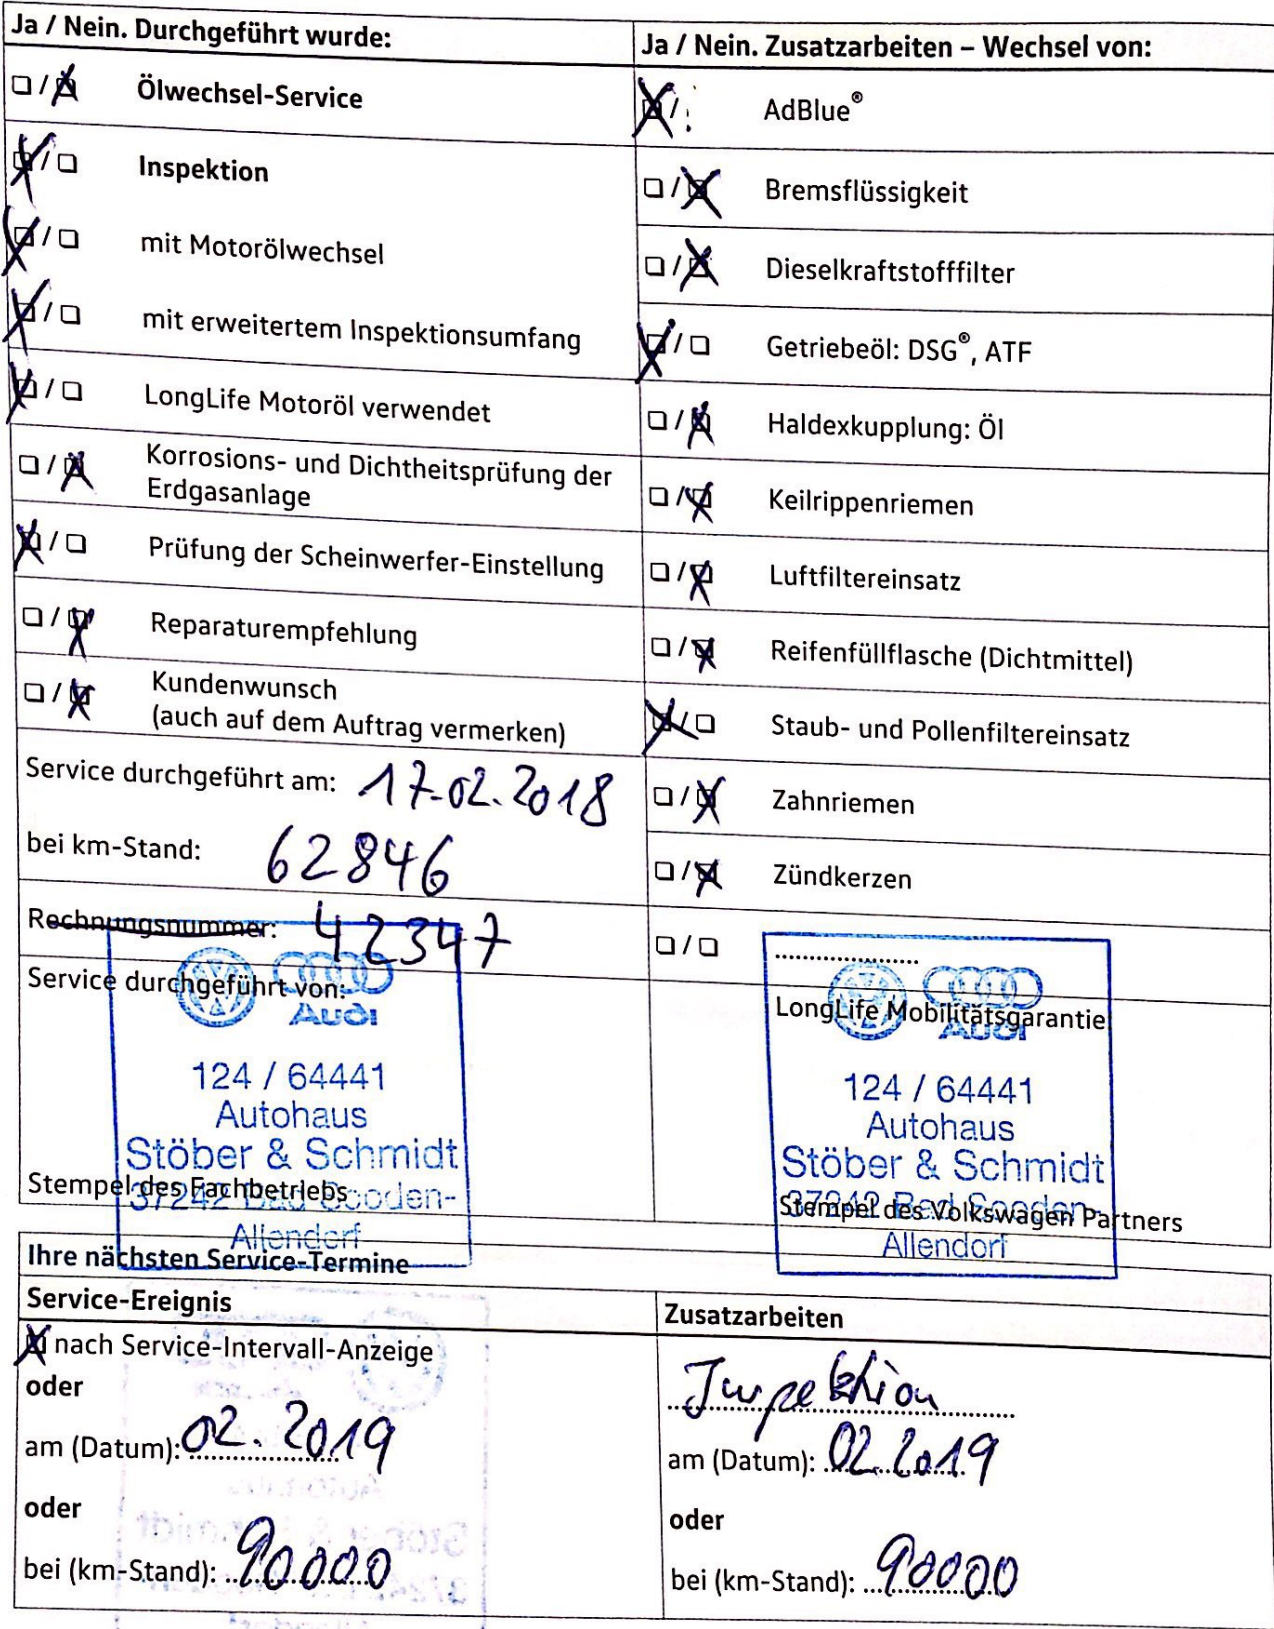 Ja / Nein. Durchgeführt wurde:
☐ / ☒ Ölwechsel-Service
☒ / ☐ Inspektion
☒ / ☐ mit Motorölwechsel
☒ / ☐ mit erweitertem Inspektionsumfang
☒ / ☐ LongLife Motoröl verwendet
☐ / ☒ Korrosions- und Dichtheitsprüfung der
Erdgasanlage
☒ / ☐ Prüfung der Scheinwerfer-Einstellung
☐ / ☒ Reparaturempfehlung
☐ / ☒ Kundenwunsch
(auch auf dem Auftrag vermerken)
Service durchgeführt am: 17.02.2018
bei km-Stand: 62846
Rechnungsnummer: 42347
Service durchgeführt von:
Audi
124 / 64441
Autohaus
Stöber & Schmidt
37242 Bad Sooden-
Allendorf
Stempel des Fachbetriebs
Ja / Nein. Zusatzarbeiten – Wechsel von:
☒ / AdBlue®
☐ / ☒ Bremsflüssigkeit
☐ / ☒ Dieselkraftstofffilter
☒ / ☐ Getriebeöl: DSG®, ATF
☐ / ☒ Haldexkupplung: Öl
☐ / ☒ Keilrippenriemen
☐ / ☒ Luftfiltereinsatz
☐ / ☒ Reifenfüllflasche (Dichtmittel)
☒ / ☐ Staub- und Pollenfiltereinsatz
☐ / ☒ Zahnriemen
☐ / ☒ Zündkerzen
☐ / ☐ ....................
LongLife Mobilitätsgarantie
Audi
124 / 64441
Autohaus
Stöber & Schmidt
37242 Bad Sooden-
Allendorf
Stempel des Volkswagen Partners
Ihre nächsten Service-Termine
Service-Ereignis
☒ nach Service-Intervall-Anzeige
oder
am (Datum): 02.2019
oder
bei (km-Stand): 90000
Zusatzarbeiten
Inspektion
am (Datum): 02.2019
oder
bei (km-Stand): 90000